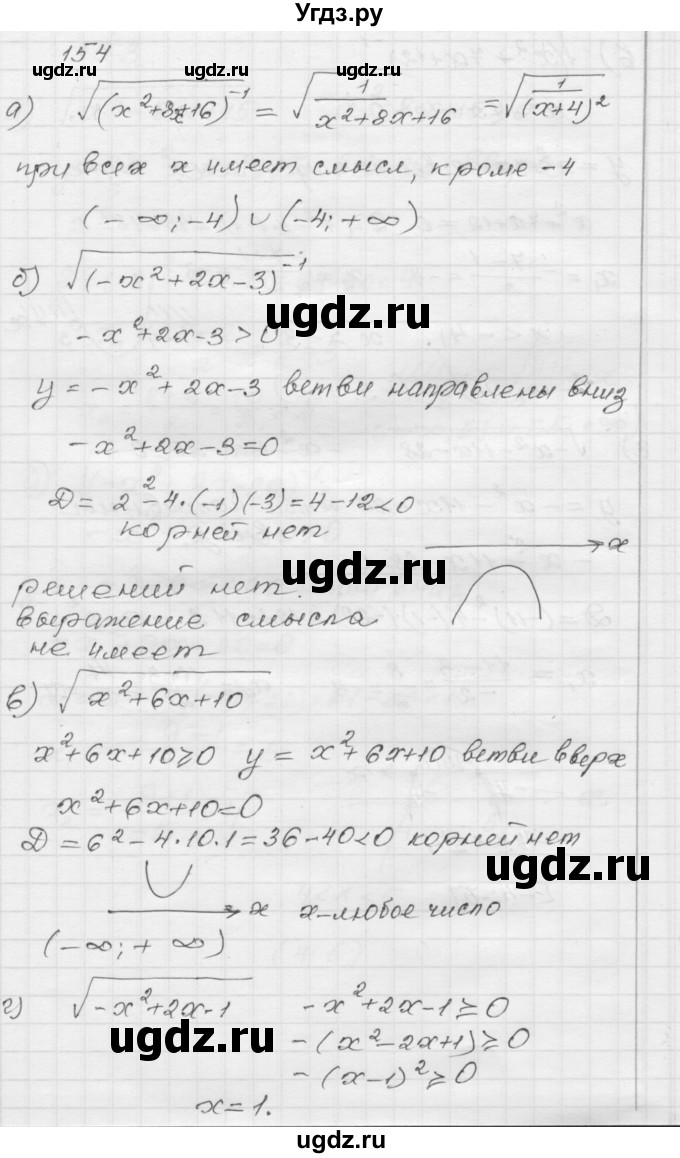 Угдз.ру
154
ugdz.ru ugdz.ru ugdz.ru
а) √(x²+8x+16)⁻¹ = √(1/(x²+8x+16)) = √(1/(x+4)²)
при всех x имеет смысл, кроме -4
(-∞;-4) ∪ (-4;+∞)
б) √(-x²+2x-3)⁻¹
ugdz.ru
-x²+2x-3>0
y = -x²+2x-3 ветви направлены вниз
ugdz.ru
-x²+2x-3=0
D = 2²-4·(-1)(-3)=4-12<0
корней нет
x
ugdz.ru
решений нет.
выражение смысла
не имеет
ugdz.ru
в) √x²+6x+10
x²+6x+10≥0 y = x²+6x+10 ветви вверх
x²+6x+10=0
D = 6²-4·10·1=36-40<0 корней нет
ugdz.ru
x x-любое число
(-∞;+∞)
г) √-x²+2x-1 -x²+2x-1≥0
ugdz.ru
-(x²-2x+1)≥0
-(x-1)²≥0
x=1.
ugdz.ru ugdz.ru